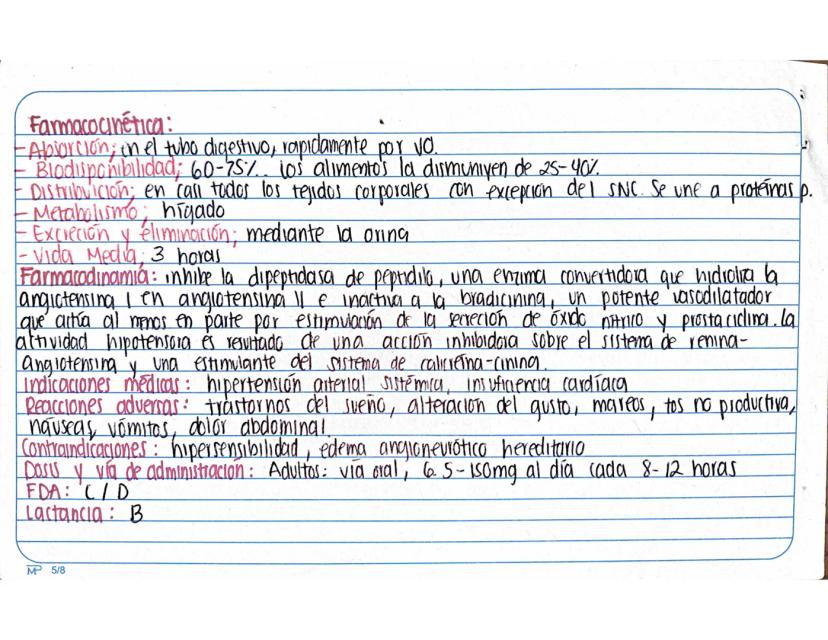 Farmacocinética:
- Absorción; en el tubo digestivo, rapidamente por VO.
- Biodisponibilidad; 60-75%. los alimentos la dismuniyen de 25-40%.
- Distribuición; en casi todos los tejidos corporales con excepción del SNC. Se une a proteínas p.
- Metabolismo; hígado
- Excreción y eliminación; mediante la orina
- Vida Media; 3 horas
Farmacodinamia: inhibe la dipeptidasa de peptidilo, una enzima convertidora que hidroliza la
angiotensina I en angiotensina II e inactiva a la bradicinina, un potente vasodilatador
que actúa al menos en parte por estimulación de la secreción de óxido nítrico y prostaciclina. La
actividad hipotensora es resultado de una acción inhibidora sobre el sistema de renina-
angiotensina y una estimulante del sistema de calicreína-cinina.
Indicaciones médicas: hipertensión arterial sistémica, insuficiencia cardíaca
Reacciones adversas: trastornos del sueño, alteración del gusto, mareos, tos no productiva,
náuseas, vómitos, dolor abdominal
Contraindicaciones: hipersensibilidad, edema angioneurótico hereditario
Dosis y vía de administración: Adultos: vía oral; 6.5-150mg al día cada 8-12 horas
FDA: C/D
Lactancia: B
MP 5/8